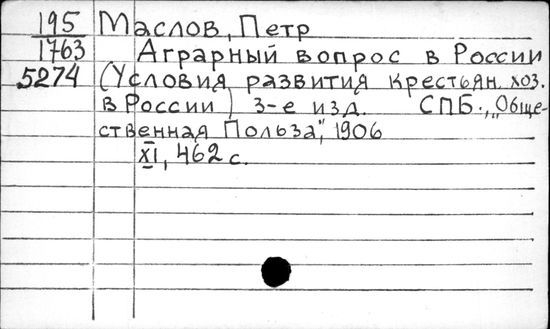 195 Маслов, Петр
1763 Аграрный вопрос в России
5274 (Условия развития крестьян. хоз.
в России) 3-е изд. СПБ., „Обще-
ственная Польза", 1906
XI, 462 с.